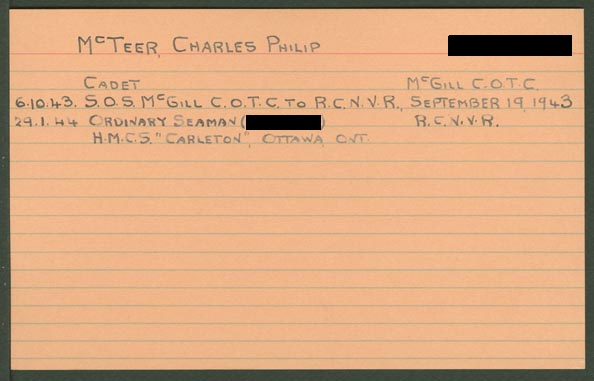 McTEER, CHARLES PHILIP
CADET McGILL C.O.T.C.
6.10.43. S.O.S. McGILL C.O.T.C. TO R.C.N.V.R., SEPTEMBER 19, 1943
29.1.44 ORDINARY SEAMAN ( ) R.C.N.V.R.
H.M.C.S. "CARLETON", OTTAWA, ONT.